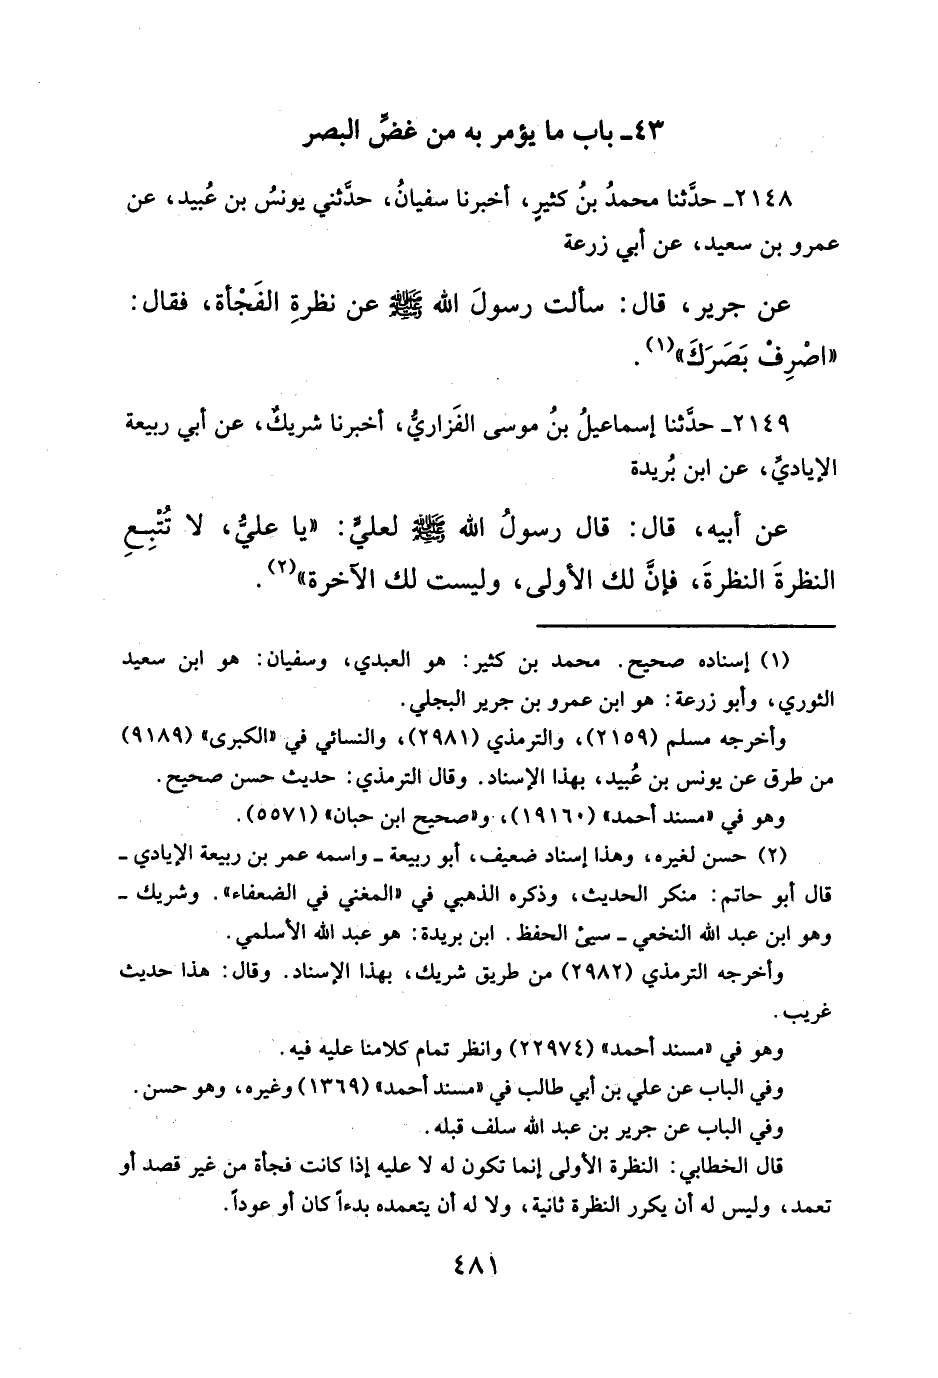 ٤٣ـ باب ما يؤمر به من غضِّ البصر
٢١٤٨ـ حدَّثنا محمدُ بنُ كثيرٍ، أخبرنا سفيانُ، حدَّثني يونسُ بن عُبيد، عن
عمرو بن سعيد، عن أبي زرعة
عن جرير، قال: سألت رسولَ الله ﷺ عن نظرةِ الفَجْأة، فقال:
«اصْرِفْ بَصَرَكَ»(١).
٢١٤٩ـ حدَّثنا إسماعيلُ بنُ موسى الفَزاريُّ، أخبرنا شريكٌ، عن أبي ربيعة
الإياديِّ، عن ابن بُريدة
عن أبيه، قال: قال رسولُ الله ﷺ لعليٍّ: «يا عليُّ، لا تُتْبِعِ
النظرةَ النظرةَ، فإنَّ لك الأولى، وليست لك الآخرة»(٢).
(١) إسناده صحيح. محمد بن كثير: هو العبدي، وسفيان: هو ابن سعيد
الثوري، وأبو زرعة: هو ابن عمرو بن جرير البجلي.
وأخرجه مسلم (٢١٥٩)، والترمذي (٢٩٨١)، والنسائي في «الكبرى» (٩١٨٩)
من طرق عن يونس بن عُبيد، بهذا الإسناد. وقال الترمذي: حديث حسن صحيح.
وهو في «مسند أحمد» (١٩١٦٠)، و«صحيح ابن حبان» (٥٥٧١).
(٢) حسن لغيره، وهذا إسناد ضعيف، أبو ربيعة ـ واسمه عمر بن ربيعة الإيادي ـ
قال أبو حاتم: منكر الحديث، وذكره الذهبي في «المغني في الضعفاء». وشريك ـ
وهو ابن عبد الله النخعي ـ سيئ الحفظ. ابن بريدة: هو عبد الله الأسلمي.
وأخرجه الترمذي (٢٩٨٢) من طريق شريك، بهذا الإسناد. وقال: هذا حديث
غريب.
وهو في «مسند أحمد» (٢٢٩٧٤) وانظر تمام كلامنا عليه فيه.
وفي الباب عن علي بن أبي طالب في «مسند أحمد» (١٣٦٩) وغيره، وهو حسن.
وفي الباب عن جرير بن عبد الله سلف قبله.
قال الخطابي: النظرة الأولى إنما تكون له لا عليه إذا كانت فجأة من غير قصد أو
تعمد، وليس له أن يكرر النظرة ثانية، ولا له أن يتعمده بدءاً كان أو عوداً.
٤٨١